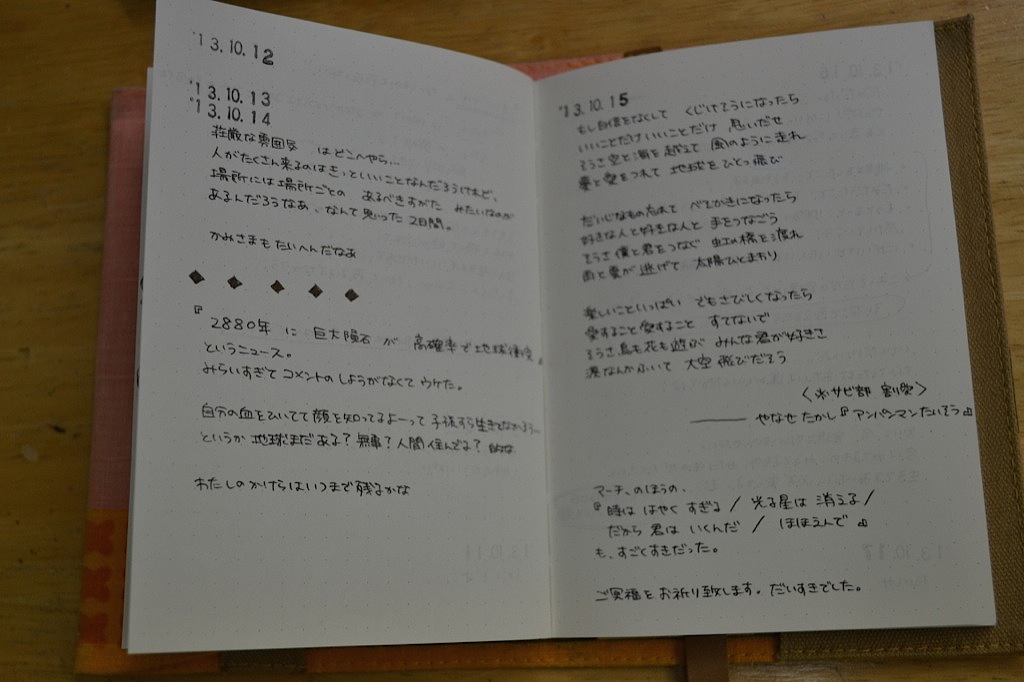 '13.10.12
'13.10.13
'13.10.14
荘厳な雰囲気 はどこへやら…
人がたくさん来るのはきっといいことなんだろうけれど、
場所には場所ごとの あるべきすがた みたいなのが
あるんだろうなあ、なんて思った 2日間。
かみさまもたいへんだなぁ
『2880年 に 巨大隕石 が 高確率で地球衝突』
というニュース。
みらいすぎて コメントの しようがなくて ウケた。
自分の血をひいてて顔を知ってるよーって子孫すら生きてなかろう…
というか 地球まだある? 無事? 人間住んでる? 的な
わたしのかけらはいつまで残るかな
'13.10.15
もし自信をなくして くじけそうになったら
いいことだけいいことだけ 思いだせ
そうさ空と海を越えて 風のように走れ
夢と愛をつれて 地球をひとっ飛び
だいじなもの忘れて べそかきになったら
好きな人と好きな人と 手をつなごう
そうさ 僕と君をつなぐ 虹の橋を渡れ
雨と雲が 逃げて 太陽ひとまわり
楽しいこといっぱい でもさびしくなったら
愛すること愛すること すてないで
そうさ 鳥も花も遊ぶ みんな君が好きさ
涙なんかふいて 大空 飛びだそう
〈※サビ部 割愛〉
――― やなせ たかし『アンパンマンたいそう』
マーチ、のほうの、
『時は はやく すぎる / 光る星は 消える /
だから 君は いくんだ / ほほえんで』
も、すごくすきだった。
ご冥福をお祈り致します。だいすきでした。